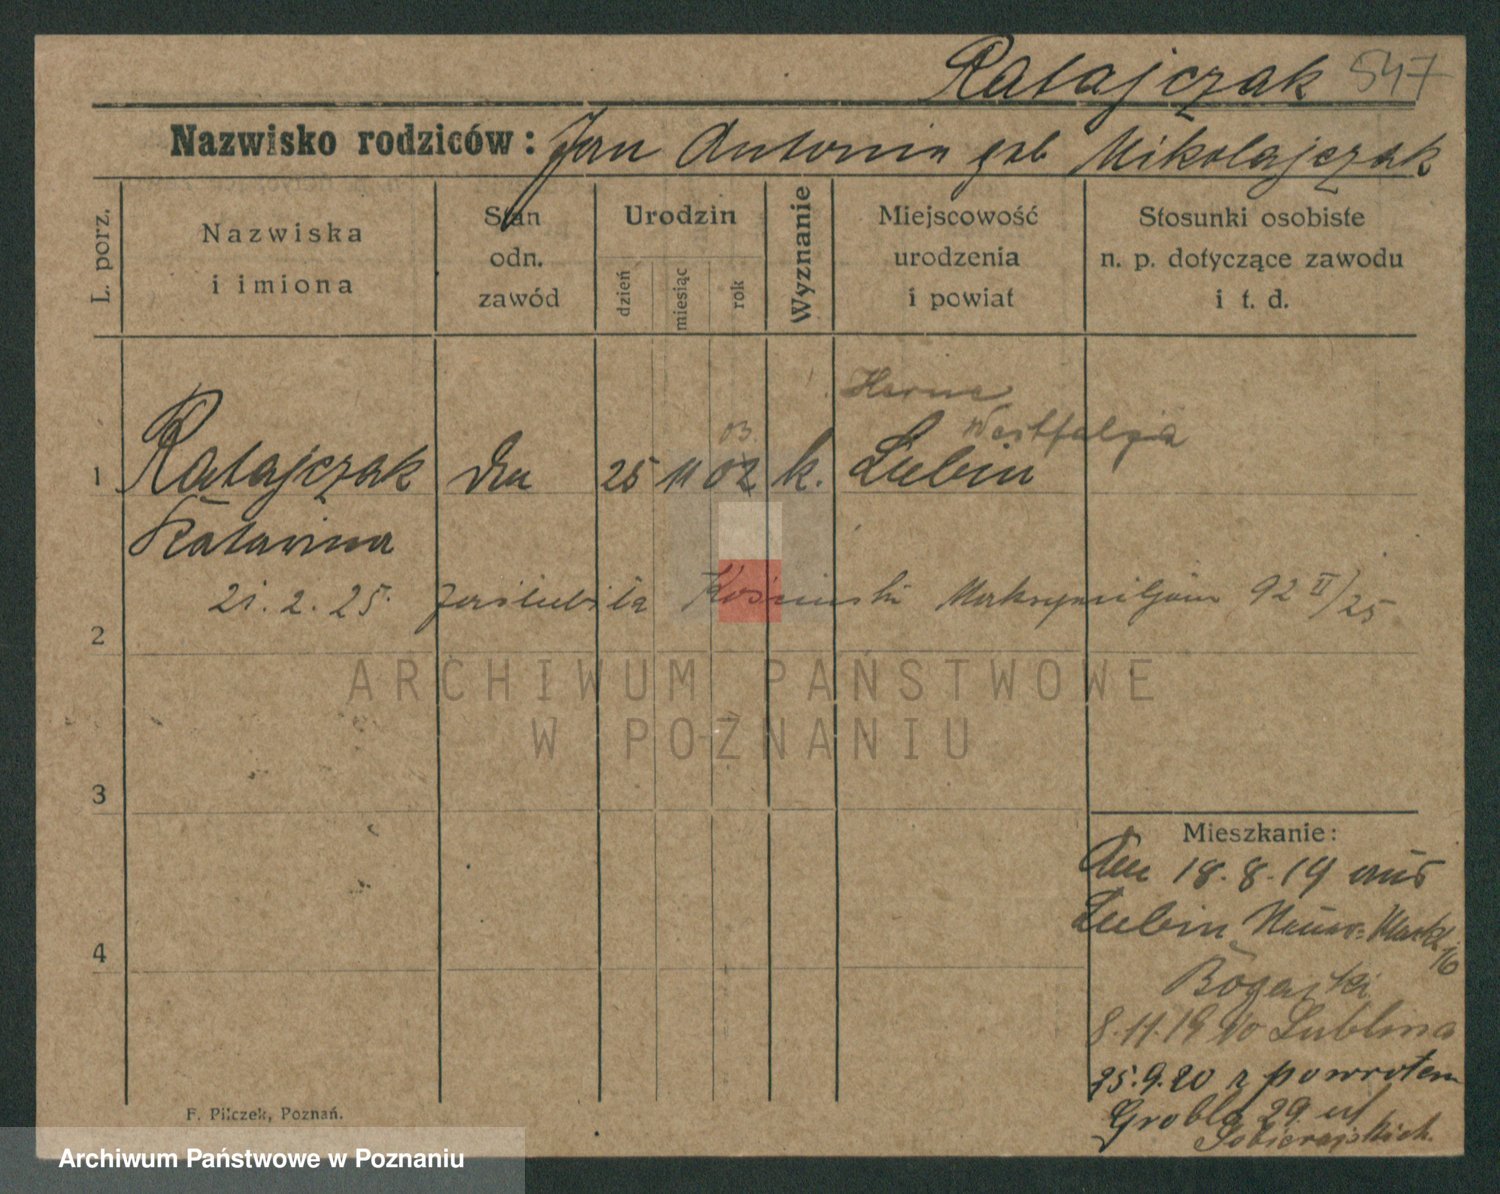 Ratajczak 547
Nazwisko rodziców: Jan Antonin geb Mikolajczak
L. porz.
Nazwiska
i imiona
Stan
odn.
zawód
Urodzin
dzień
miesiąc
rok
Wyznanie
Miejscowość
urodzenia
i powiat
Stosunki osobiste
n. p. dotyczące zawodu
i t. d.
Herne
03 Westfalja
1 Ratajczak 25 11 02 k. Lubin
Katarina
21. 2. 25. zaślubiła Maksymiljan 92 II/25
2
ARCHIWUM PAŃSTWOWE
W POZNANIU
3
Mieszkanie:
18.8.19 aus
Lubin Neuer-Markt
10
4
8.11.19 do Lublina
25.9.20 z powrotem
Grobla 29
F. Pilczek, Poznań.
Archiwum Państwowe w Poznaniu